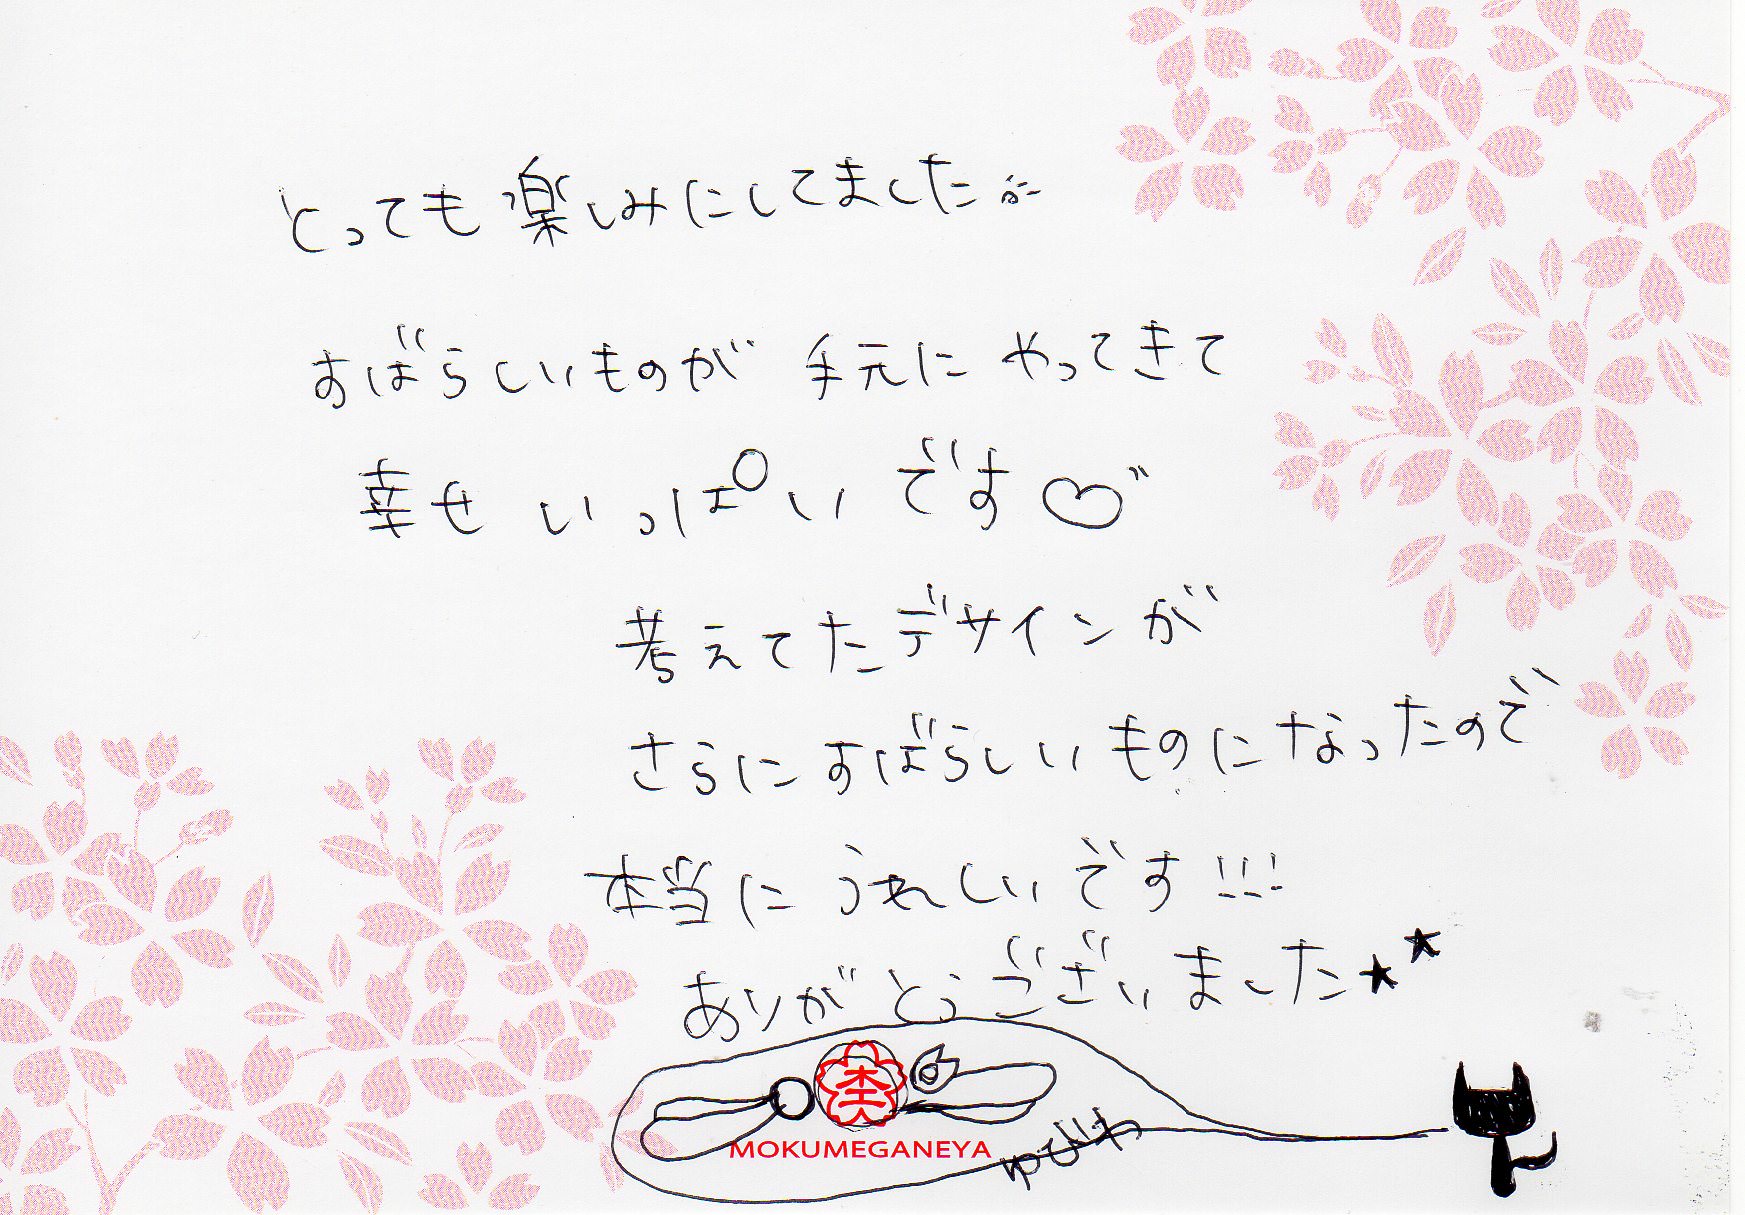 とっても楽しみにしてました!!
すばらしいものが 手元に やってきて
幸せ いっぱい です♡
考えてたデザインが
さらにすばらしいものになったので
本当に うれしいです!!!
ありがとうございました★★
杢
MOKUMEGANEYA
ゆびわ